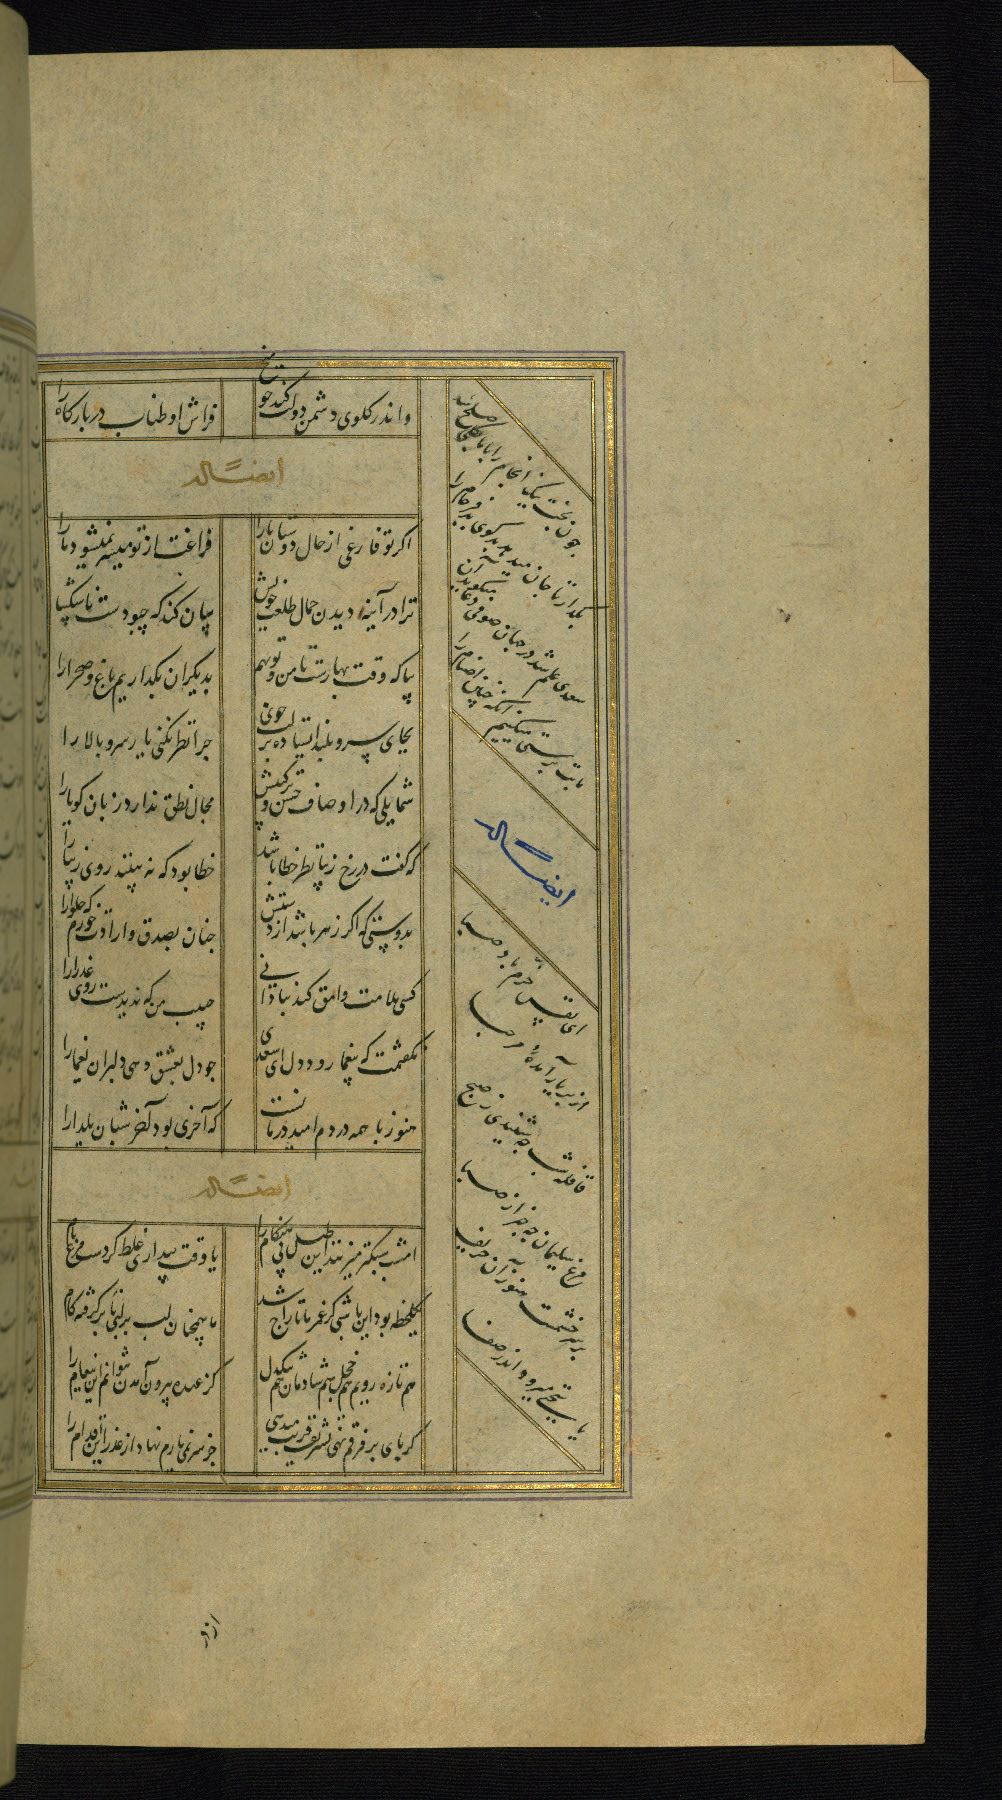 و اندر کلوی دشمن دولت کند چو میخ
فراش او طناب در بارگاه را
ایضاً له
اکر تو فارغی از حال دوستان یارا
فراغت از تو میسر نمیشود ما را
ترا در آینه دیدن جمال طلعت خویش
بیان کند که چه بودست ناشکیبا را
بیا که وقت بهارست تا من و تو بهم
بدیکران بکذاریم باغ و صحرا را
بجای سرو بلند ایستاده بر لب جوی
چرا نظر نکنی یار سرو بالا را
شمایلی که در اوصاف حسن ترکیبش
مجال نطق ندارد زبان کویا را
که کفت در رخ زیبا نظر خطا باشد
خطا بود که نه بینند روی زیبا را
بدوستی که اکر زهر باشد از دستت
چنان بصدق و ارادت خورم که حلوا را
کسی ملامت وامق کند بنادانی
حبیب من که ندیدست روی عذرا را
نکفتمت که بیغما رود دل ای سعدی
چو دل بعشق دهی دلبران یغما را
هنوز با همه دردم امید درمانست
که آخری بود آخر شبان یلدا را
ایضاً له
امشب سبکتر میزنند این طبل بی هنکام را
یا وقت بیداری غلط کردست مرغ بام را
یکلحظه بود این یا شبی کز عمر ما تاراج شد
ما همچنان لب بر لبی نا بر کرفته کام را
هم تازه رویم هم خجل هم شادمان هم تنکدل
کز عهده بیرون آمدن نتوانم این انعام را
کر پای بر فرقم نهی تشریف قربت میدهی
جز سر نمی یارم نهاد از عذر این اقدام را
چون بخت نیک انجام را با ما بکلی صلح شد
بکذار تا جان میدهد بدکوی بد فرجام را
سعدی علم شد در جهان صوفی و عامی کو بدان
ما بت پرستی میکنیم آنکه چنین اصنام را
ایضاً له
ای نفس خرم باد صبا
از بر یار آمدهٔ مرحبا
قافله شب چه شنیدی ز صبح
مرغ سلیمان چه خبر از صبا
بر سر خشمست هنوز آن حریف
یا سخنی میرود اندر صفا
از در